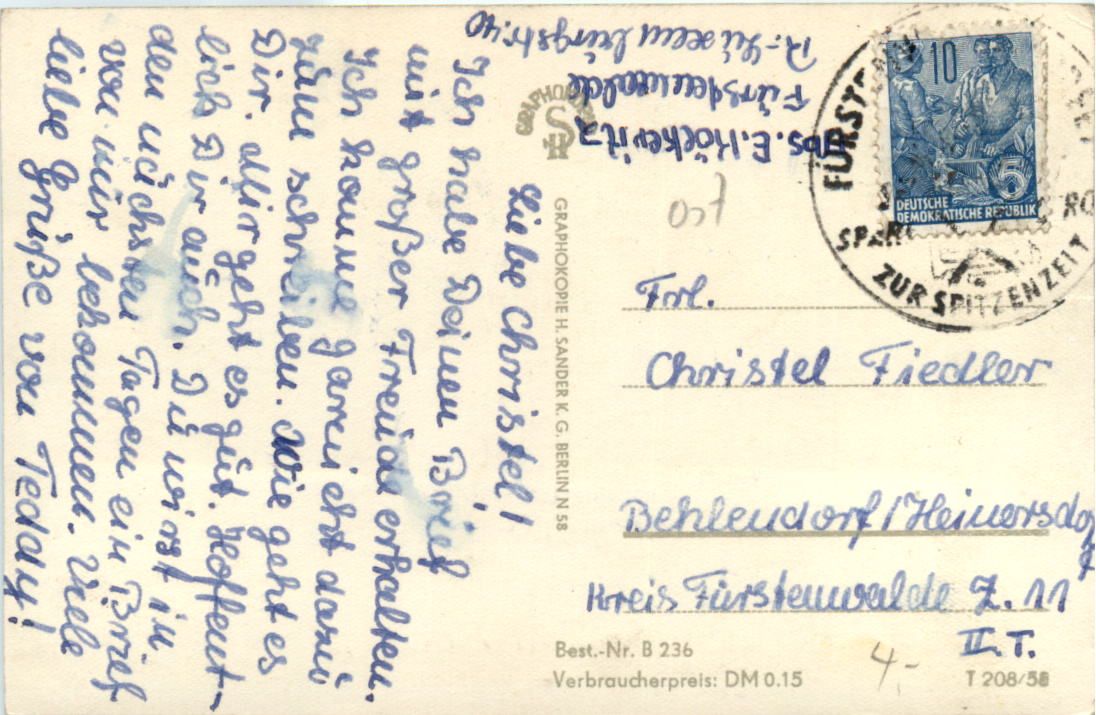 Liebe Christel!
Ich habe Deinen Brief
mit großer Freude erhalten.
Ich komme garnicht dazu
zum schreiben. Wie geht es
Dir. Mir geht es gut. Hoffent-
lich Dir auch. Du wirst in
den nächsten Tagen ein Brief
von mir bekommen. Viele
liebe Grüße von Teddy!
Abs. E. Köckeritz
Fürstenwalde
R.-Luxemburgstr. 40
GRAPHOKOPIE H. SANDER K. G. BERLIN N 58
Ost
10
5
DEUTSCHE
DEMOKRATISCHE REPUBLIK
ZUR SPITZENZEIT
Frl.
Christel Fiedler
Behlendorf/Heinersdorf
Kreis Fürstenwalde Z. 11
II. T.
Best.-Nr. B 236
Verbraucherpreis: DM 0.15
4,-
T 208/58